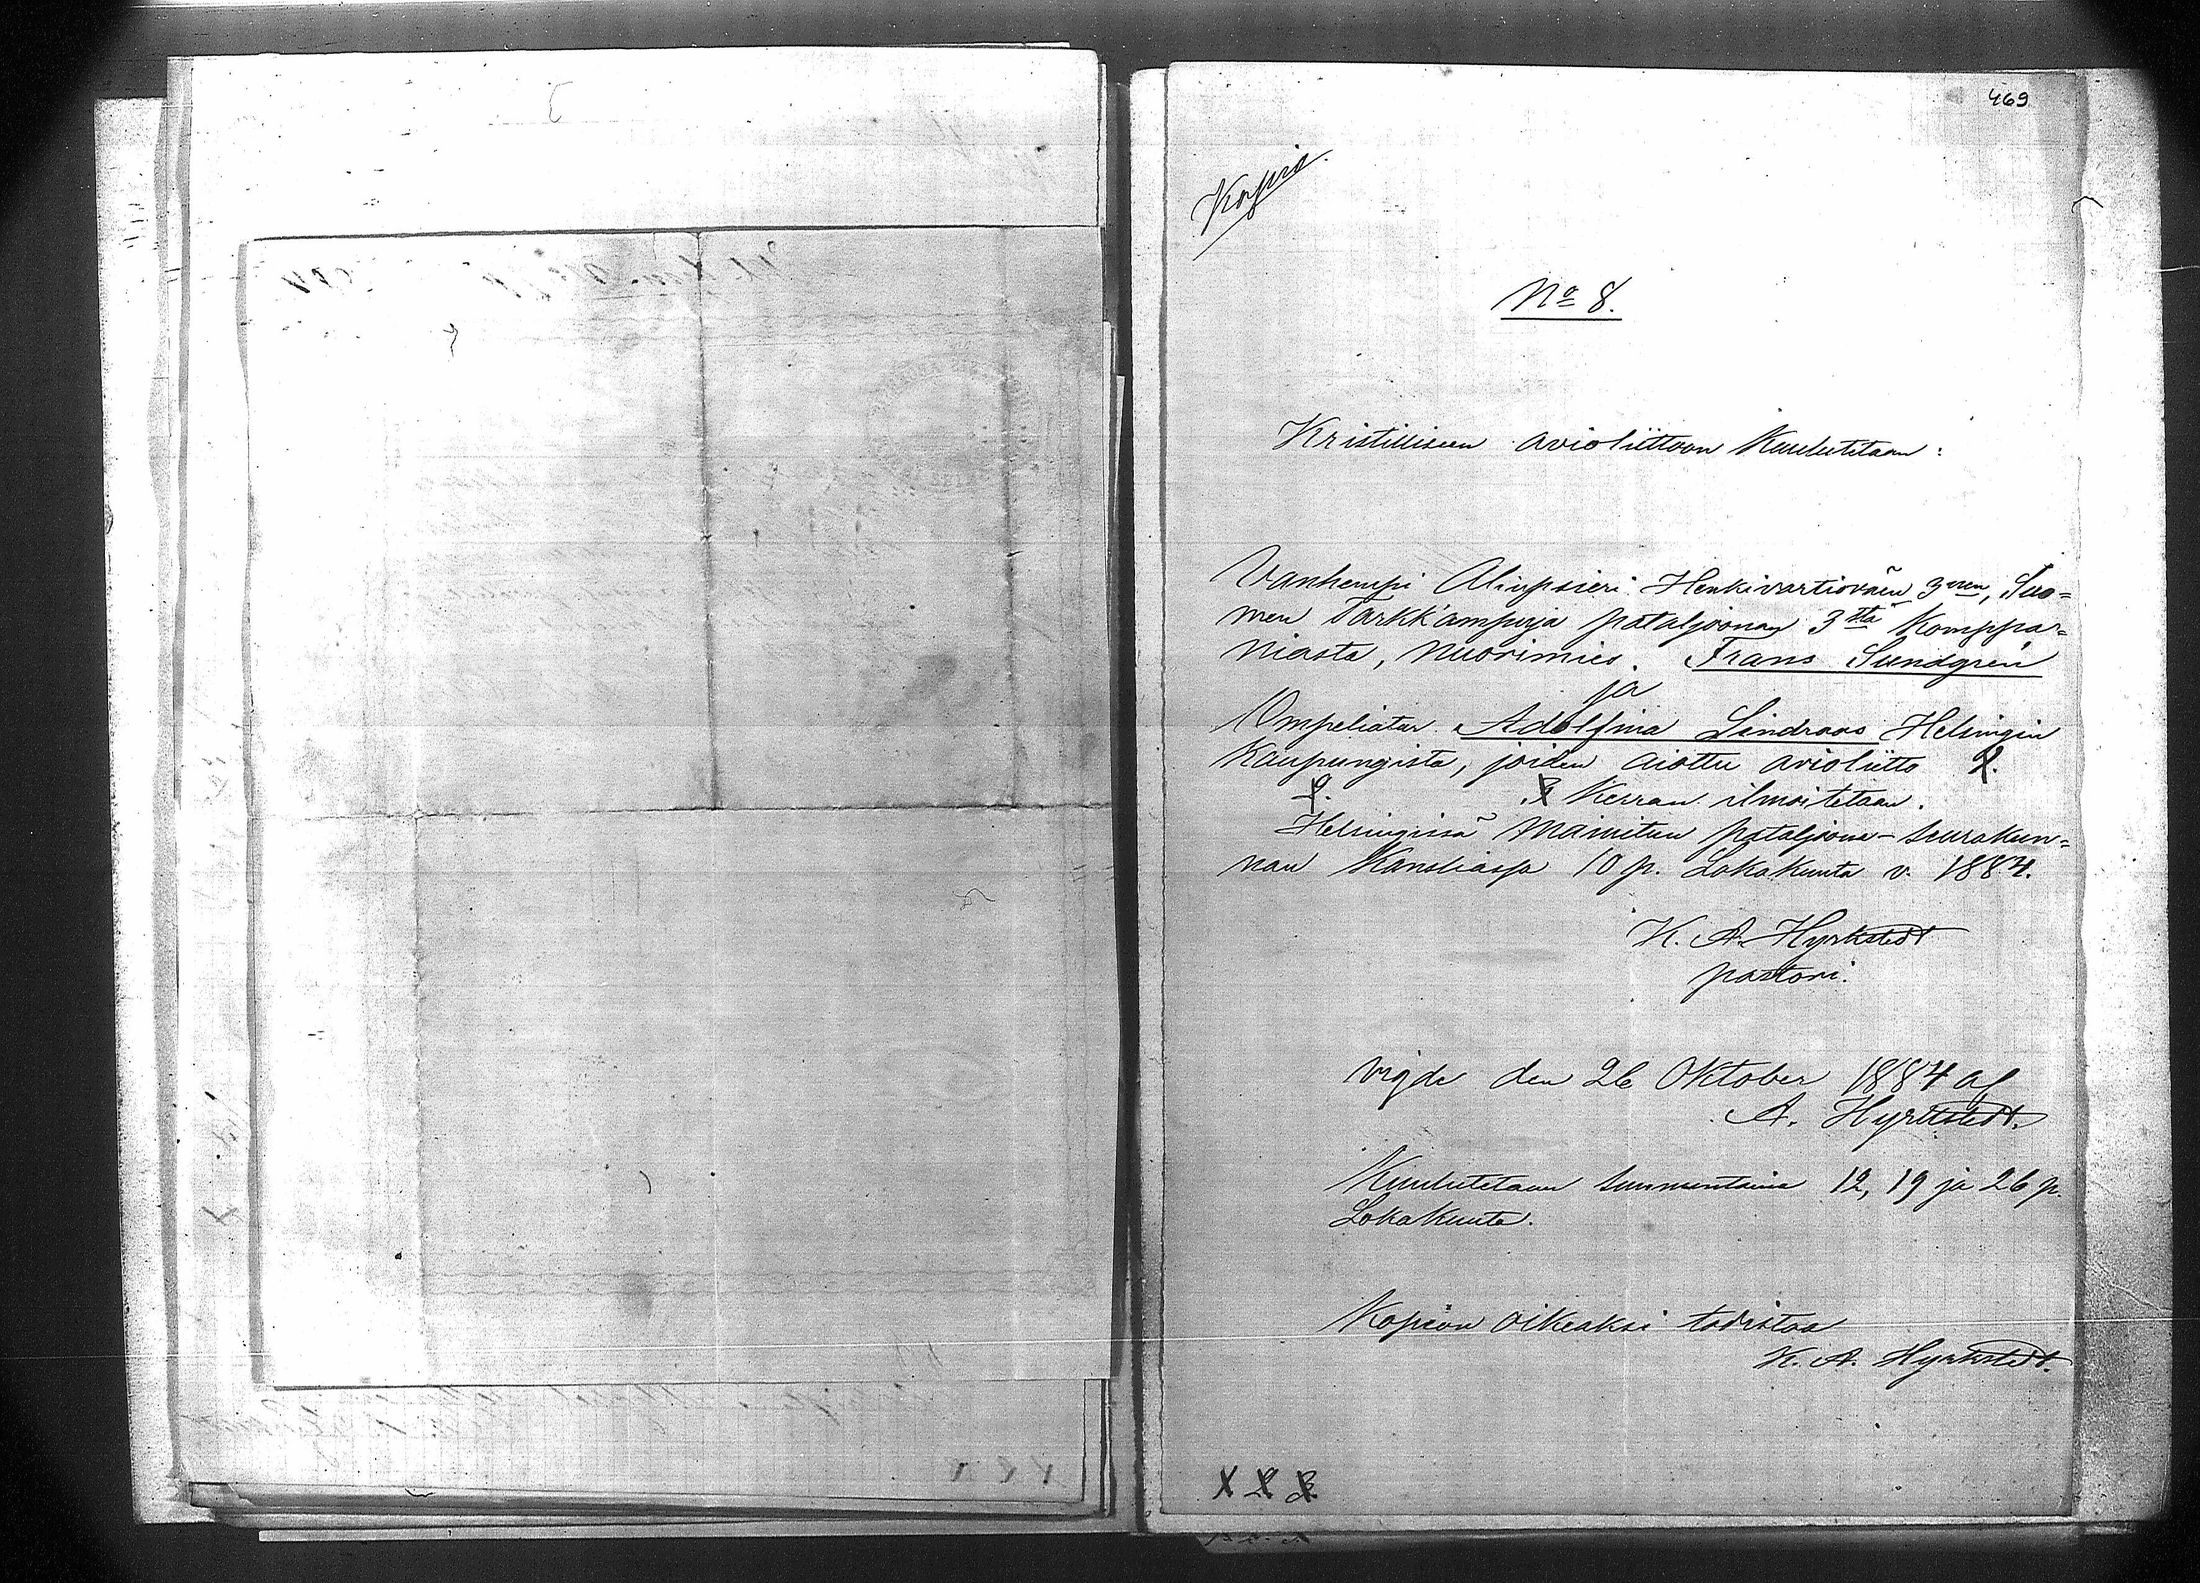 469
Kopia.
No 8.
Kristilliseen avioliittoon Kuulutetaan:
Vanhempi Aliupsieri Henkivartioväen 3nen, Suo=
men Tarkk'ampuja pataljoonan 3ttä Komppa=
niasta, nuorimies Frans Sundgrén
ja
Ompeliatar Adolfina Lindroos Helsingin
Kaupungista, joiden aiottu avioliitto 1.
2. 3 Kerran ilmoitetaan.
Helsingissä mainitun pataljoona-seurakun=
nan Kansliassa 10 p. Lokakuuta v. 1884.
K. A. Hyrkstedt
pastori.
Vigde den 26 Oktober 1884 af
A. Hyrkstedt.
Kuulutetaan sunnuntaina 12, 19 ja 26 p.
Lokakuuta.
Kopion oikeaksi todistaa
K. A. Hyrkstedt.
1 2 3